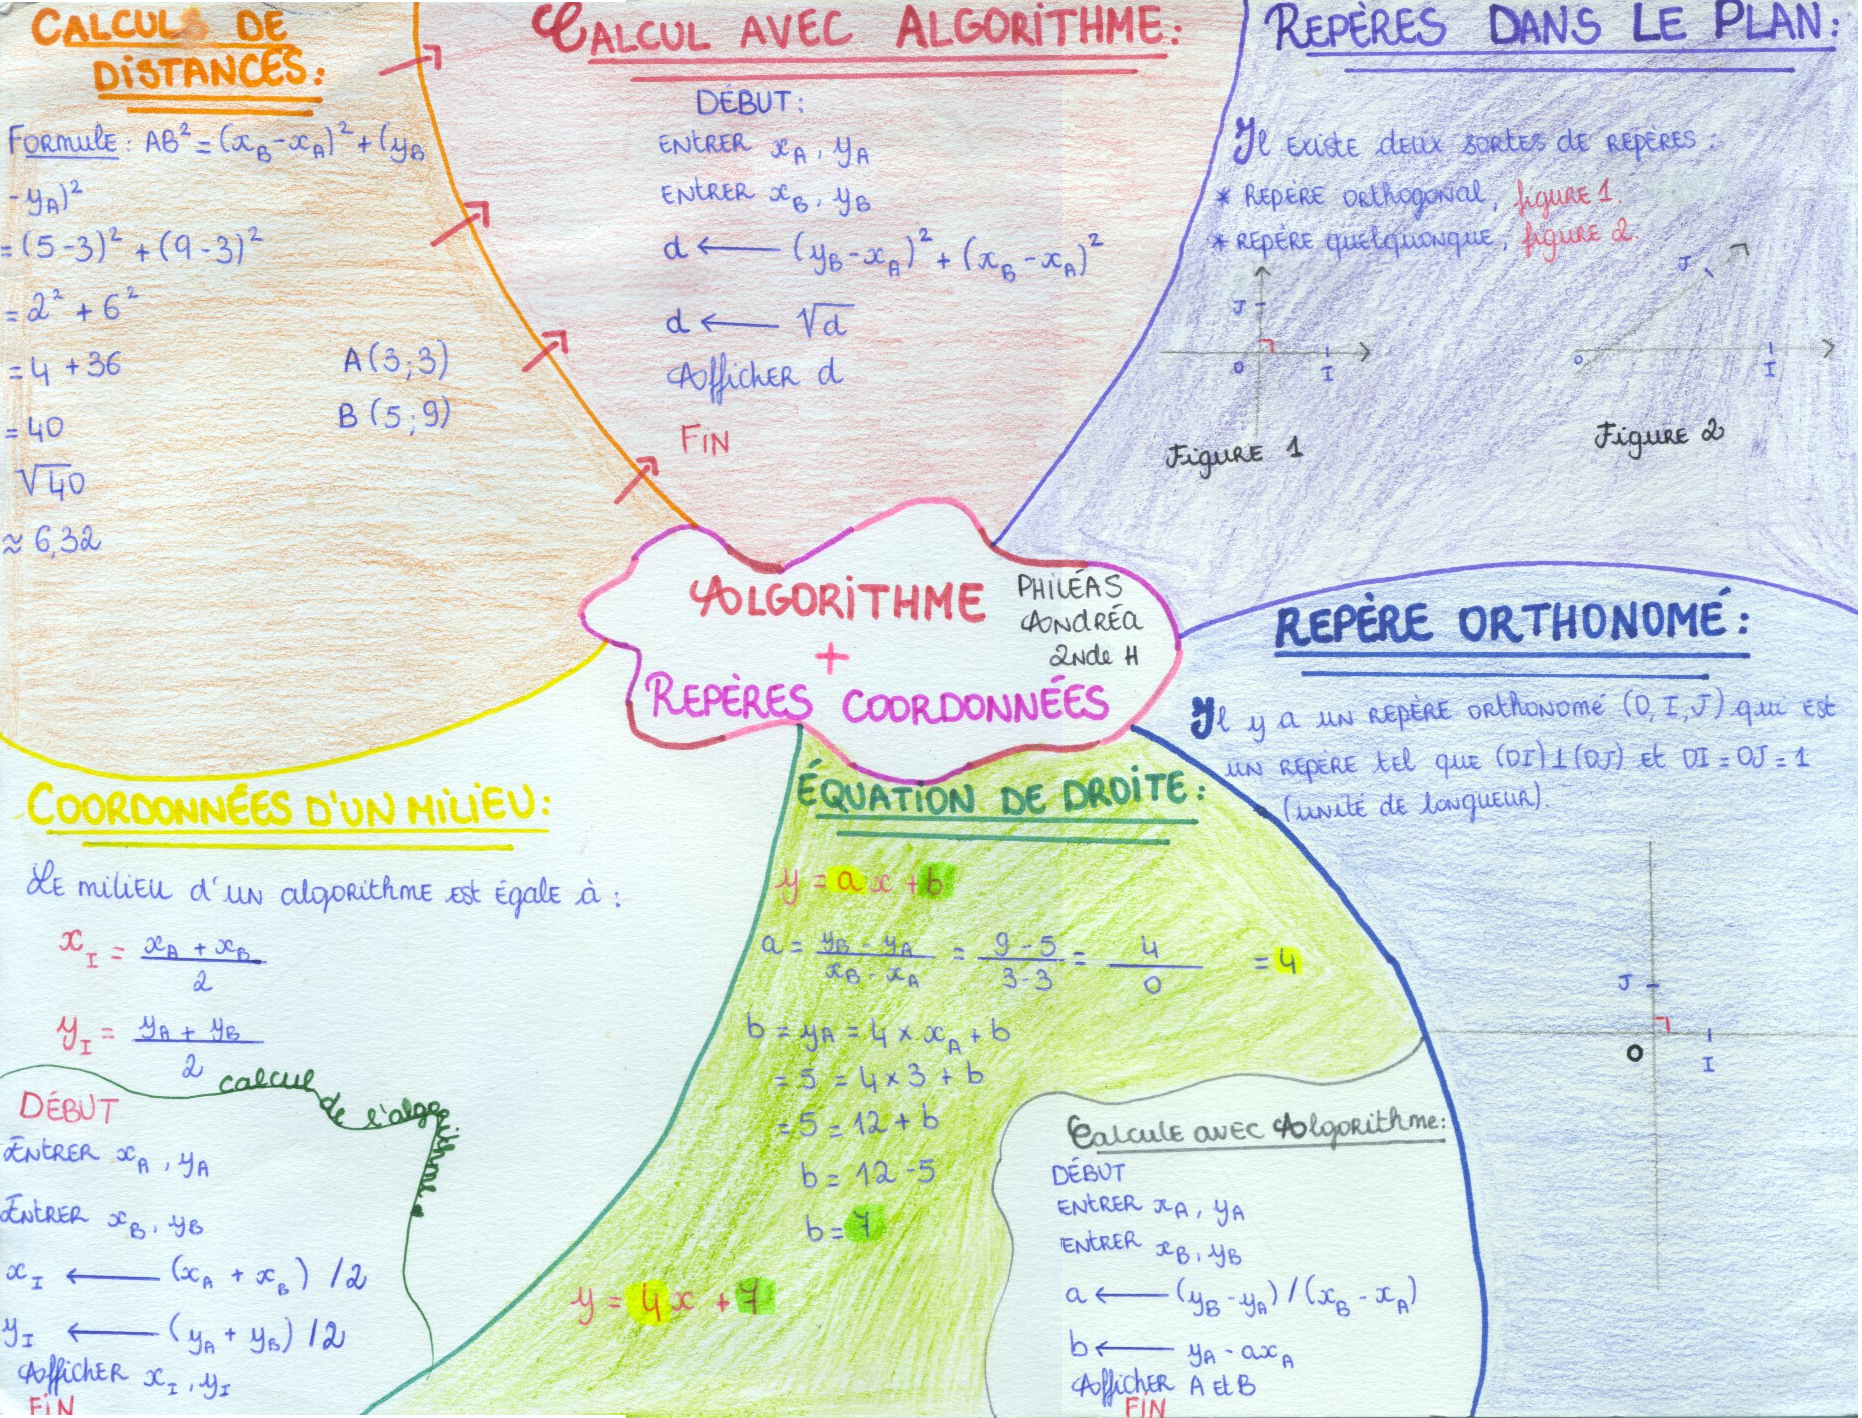 CALCULS DE
DISTANCES:
FORMULE : AB² = (x_B - x_A)² + (y_B
- y_A)²
= (5-3)² + (9-3)²
= 2² + 6²
= 4 + 36
= 40
√40
≈ 6,32
A (3;3)
B (5;9)
CALCUL AVEC ALGORITHME:
DÉBUT:
ENTRER x_A, y_A
ENTRER x_B, y_B
d ← (y_B - x_A)² + (x_B - x_A)²
d ← √d
Afficher d
FIN
REPÈRES DANS LE PLAN:
Il existe deux sortes de repères :
* Repère orthogonal, figure 1.
* Repère quelquonque, figure 2.
J
O
I
Figure 1
J
O
I
Figure 2
ALGORITHME
+
REPÈRES COORDONNÉES
PHILÉAS
ANDRÉA
2NDE H
REPÈRE ORTHONOMÉ:
Il y a un repère orthonomé (O, I, J) qui est
un repère tel que (OI)⊥(OJ) et OI = OJ = 1
(unité de longueur).
J
O
I
COORDONNÉES D'UN MILIEU:
Le milieu d'un algorithme est égale à :
x_I = (x_A + x_B) / 2
y_I = (y_A + y_B) / 2
calcul de l'algorithme.
DÉBUT
ENTRER x_A, y_A
ENTRER x_B, y_B
x_I ← (x_A + x_B) /2
y_I ← (y_A + y_B) /2
Afficher x_I, y_I
FIN
ÉQUATION DE DROITE:
y = ax + b
a = (y_B - y_A) / (x_B - x_A) = (9 - 5) / (3 - 3) = 4 / 0 = 4
b = y_A = 4 × x_A + b
= 5 = 4 × 3 + b
= 5 = 12 + b
b = 12 - 5
b = 7
y = 4x + 7
Calcule avec Algorithme:
DÉBUT
ENTRER x_A, y_A
ENTRER x_B, y_B
a ← (y_B - y_A) / (x_B - x_A)
b ← y_A - ax_A
Afficher A et B
FIN